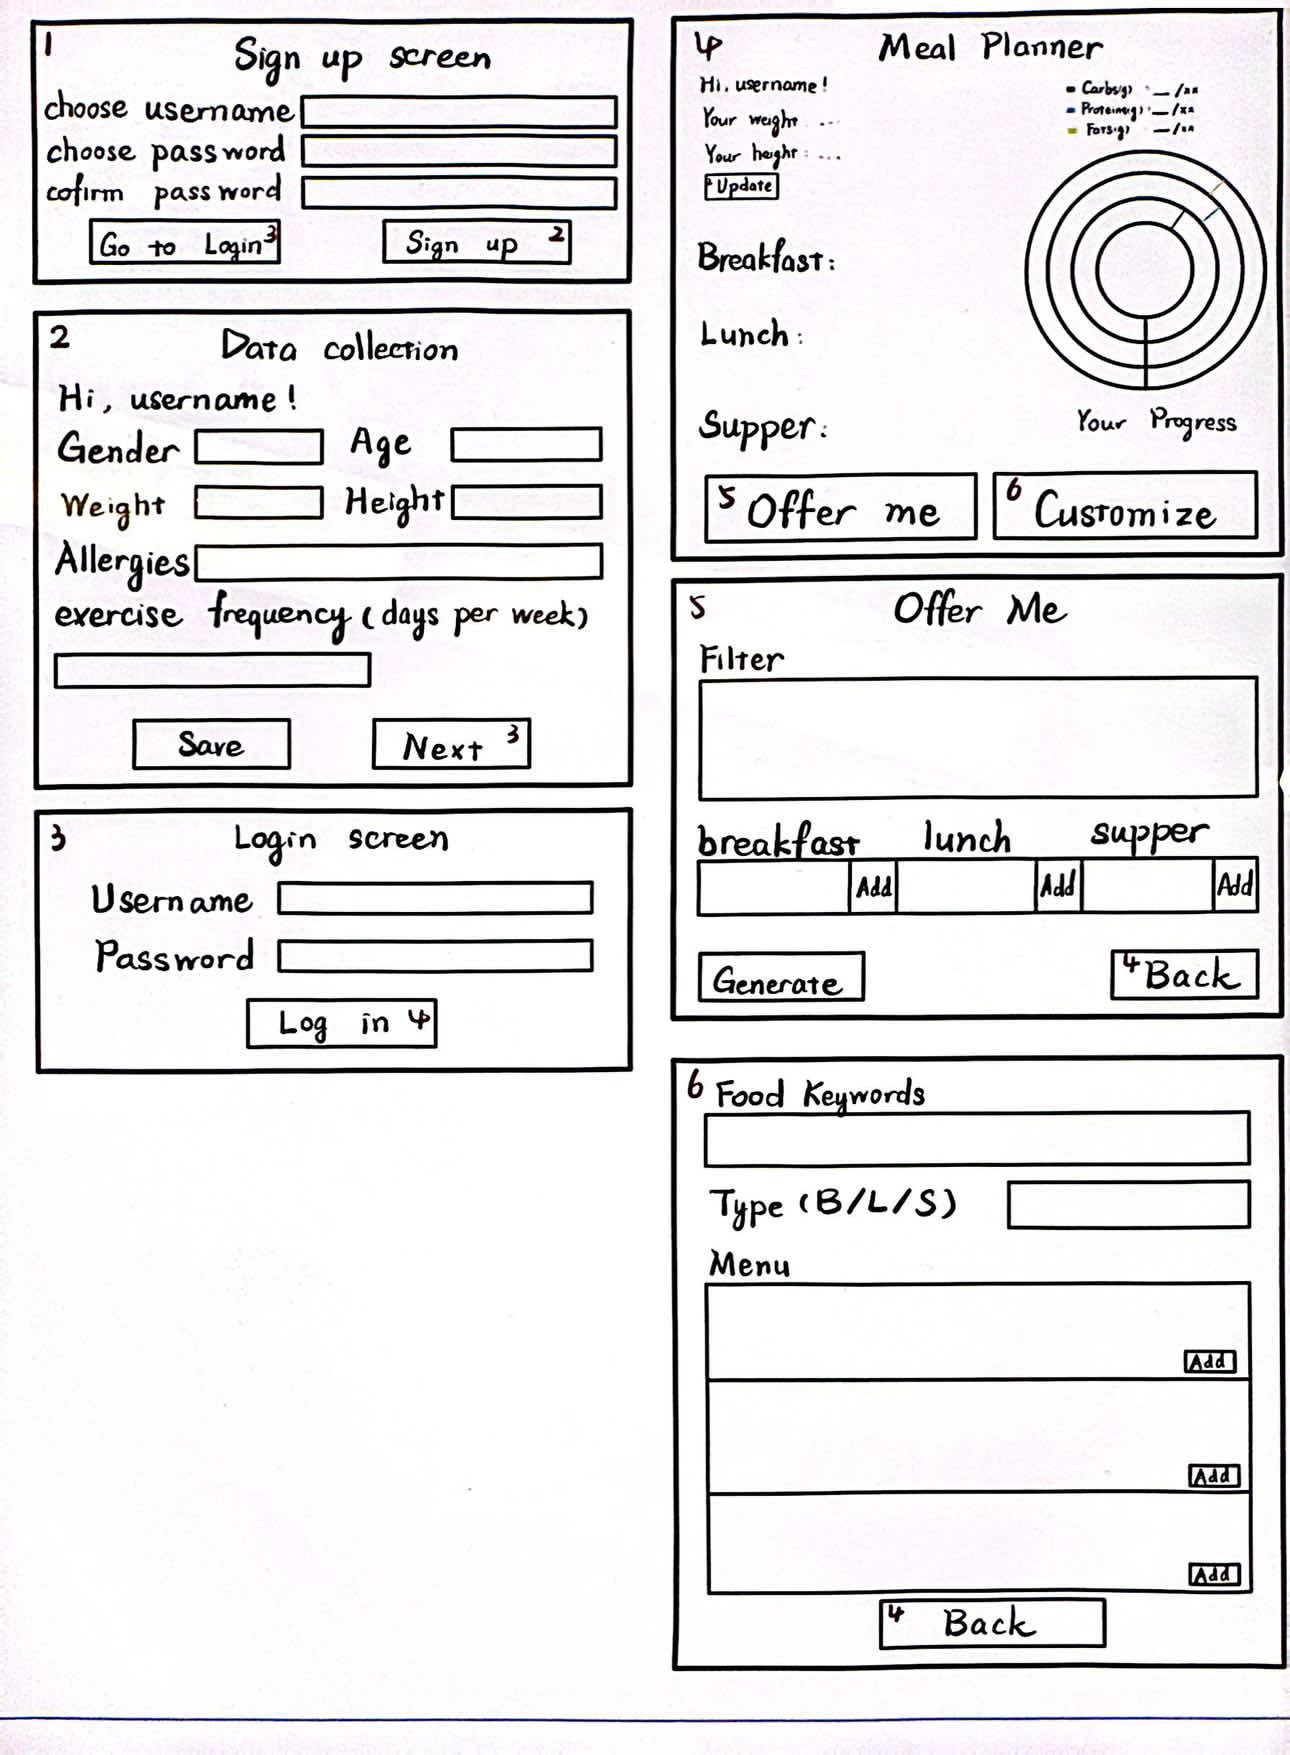 1
Sign up screen
choose username
choose password
cofirm password
Go to Login 3
Sign up 2
2
Data collection
Hi, username!
Gender Age
Weight Height
Allergies
exercise frequency (days per week)
Save
Next 3
3
Login screen
Username
Password
Log in 4
4
Meal Planner
Hi, username!
Your weight ...
Your height: ...
Update
Carbs(g)
Proteins(g)
Fats(g)
Breakfast:
Lunch:
Supper:
Your Progress
5 Offer me
6 Customize
5
Offer Me
Filter
breakfast lunch supper
Add Add Add
Generate
4 Back
6 Food Keywords
Type (B/L/S)
Menu
Add
Add
Add
4 Back